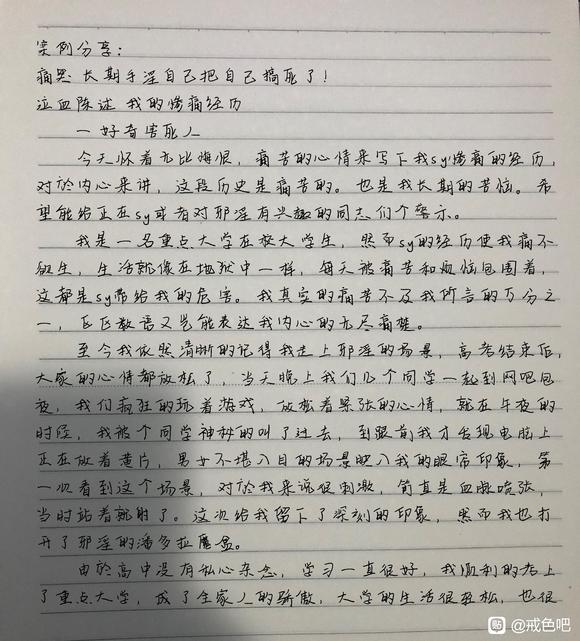 案例分享：
痛哭 长期手淫自己把自己搞死了！
泣血陈述 我的惨痛经历
一 好奇害死人
今天怀着无比悔恨，痛苦的心情来写下我sy惨痛的经历，
对於内心来讲，这段历史是痛苦的。也是我长期的苦恼。希
望能给正在sy或者对邪淫有兴趣的同志们个警示。
我是一名重点大学在校大学生，然而sy的经历使我痛不
欲生，生活就像在地狱中一样，每天被痛苦和烦恼包围着，
这都是sy带给我的危害。我真实的痛苦不及我所言的万分之
一，区区数语又岂能表达我内心的无尽痛楚。
至今我依然清晰的记得我走上邪淫的场景，高考结束后，
大家的心情都放松了，当天晚上我们几个同学一起到网吧包
夜，我们疯狂的玩着游戏，放松着紧张的心情，就在午夜的
时候，我被个同学神秘的叫了过去，到跟前我才发现电脑上
正在放着黄片，男女不堪入目的场景映入我的眼帘印象，第
一次看到这个场景，对於我来说很刺激，简直是血脉喷张，
当时站着就射了。这次给我留下了深刻的印象，然而我也打
开了邪淫的潘多拉魔盒。
由於高中没有私心杂念，学习一直很好，我顺利的考上
了重点大学，成了全家人的骄傲，大学的生活很轻松，也很
贴 @戒色吧